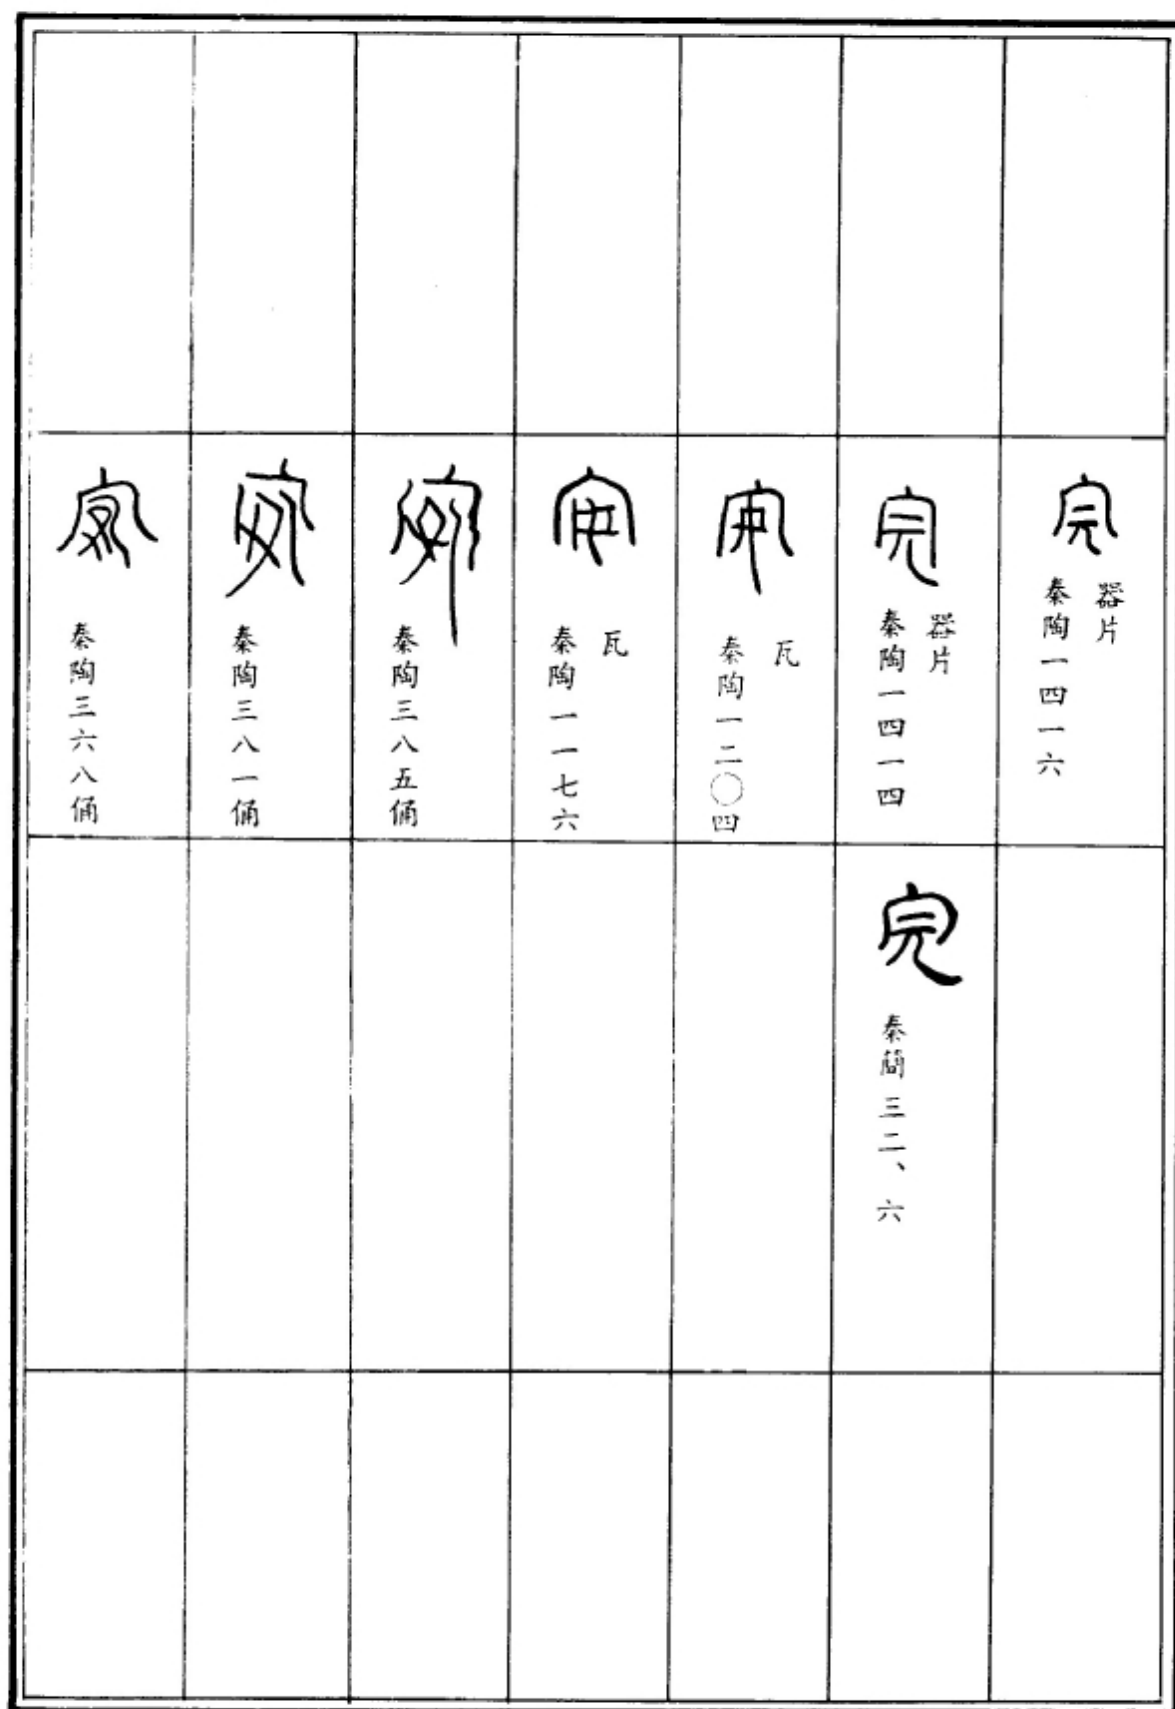 完
器片
秦陶一四一六
完
器片
秦陶一四一四
完
秦簡三二、六
瓦
秦陶一二〇四
瓦
秦陶一一七六
秦陶三八五俑
秦陶三八一俑
秦陶三六八俑